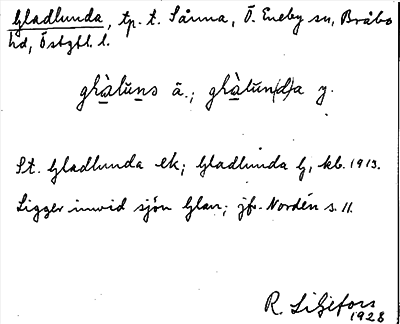 Gladlunda, tp. t. Sånna, Ö. Eneby sn, Bråbo
hd, Östgtl. l.
St. Gladlunda ek; Gladlunda G, kb. 1913.
Ligger invid sjön Glan; jfr Nordén s. 11.
R. Liljefors
1928